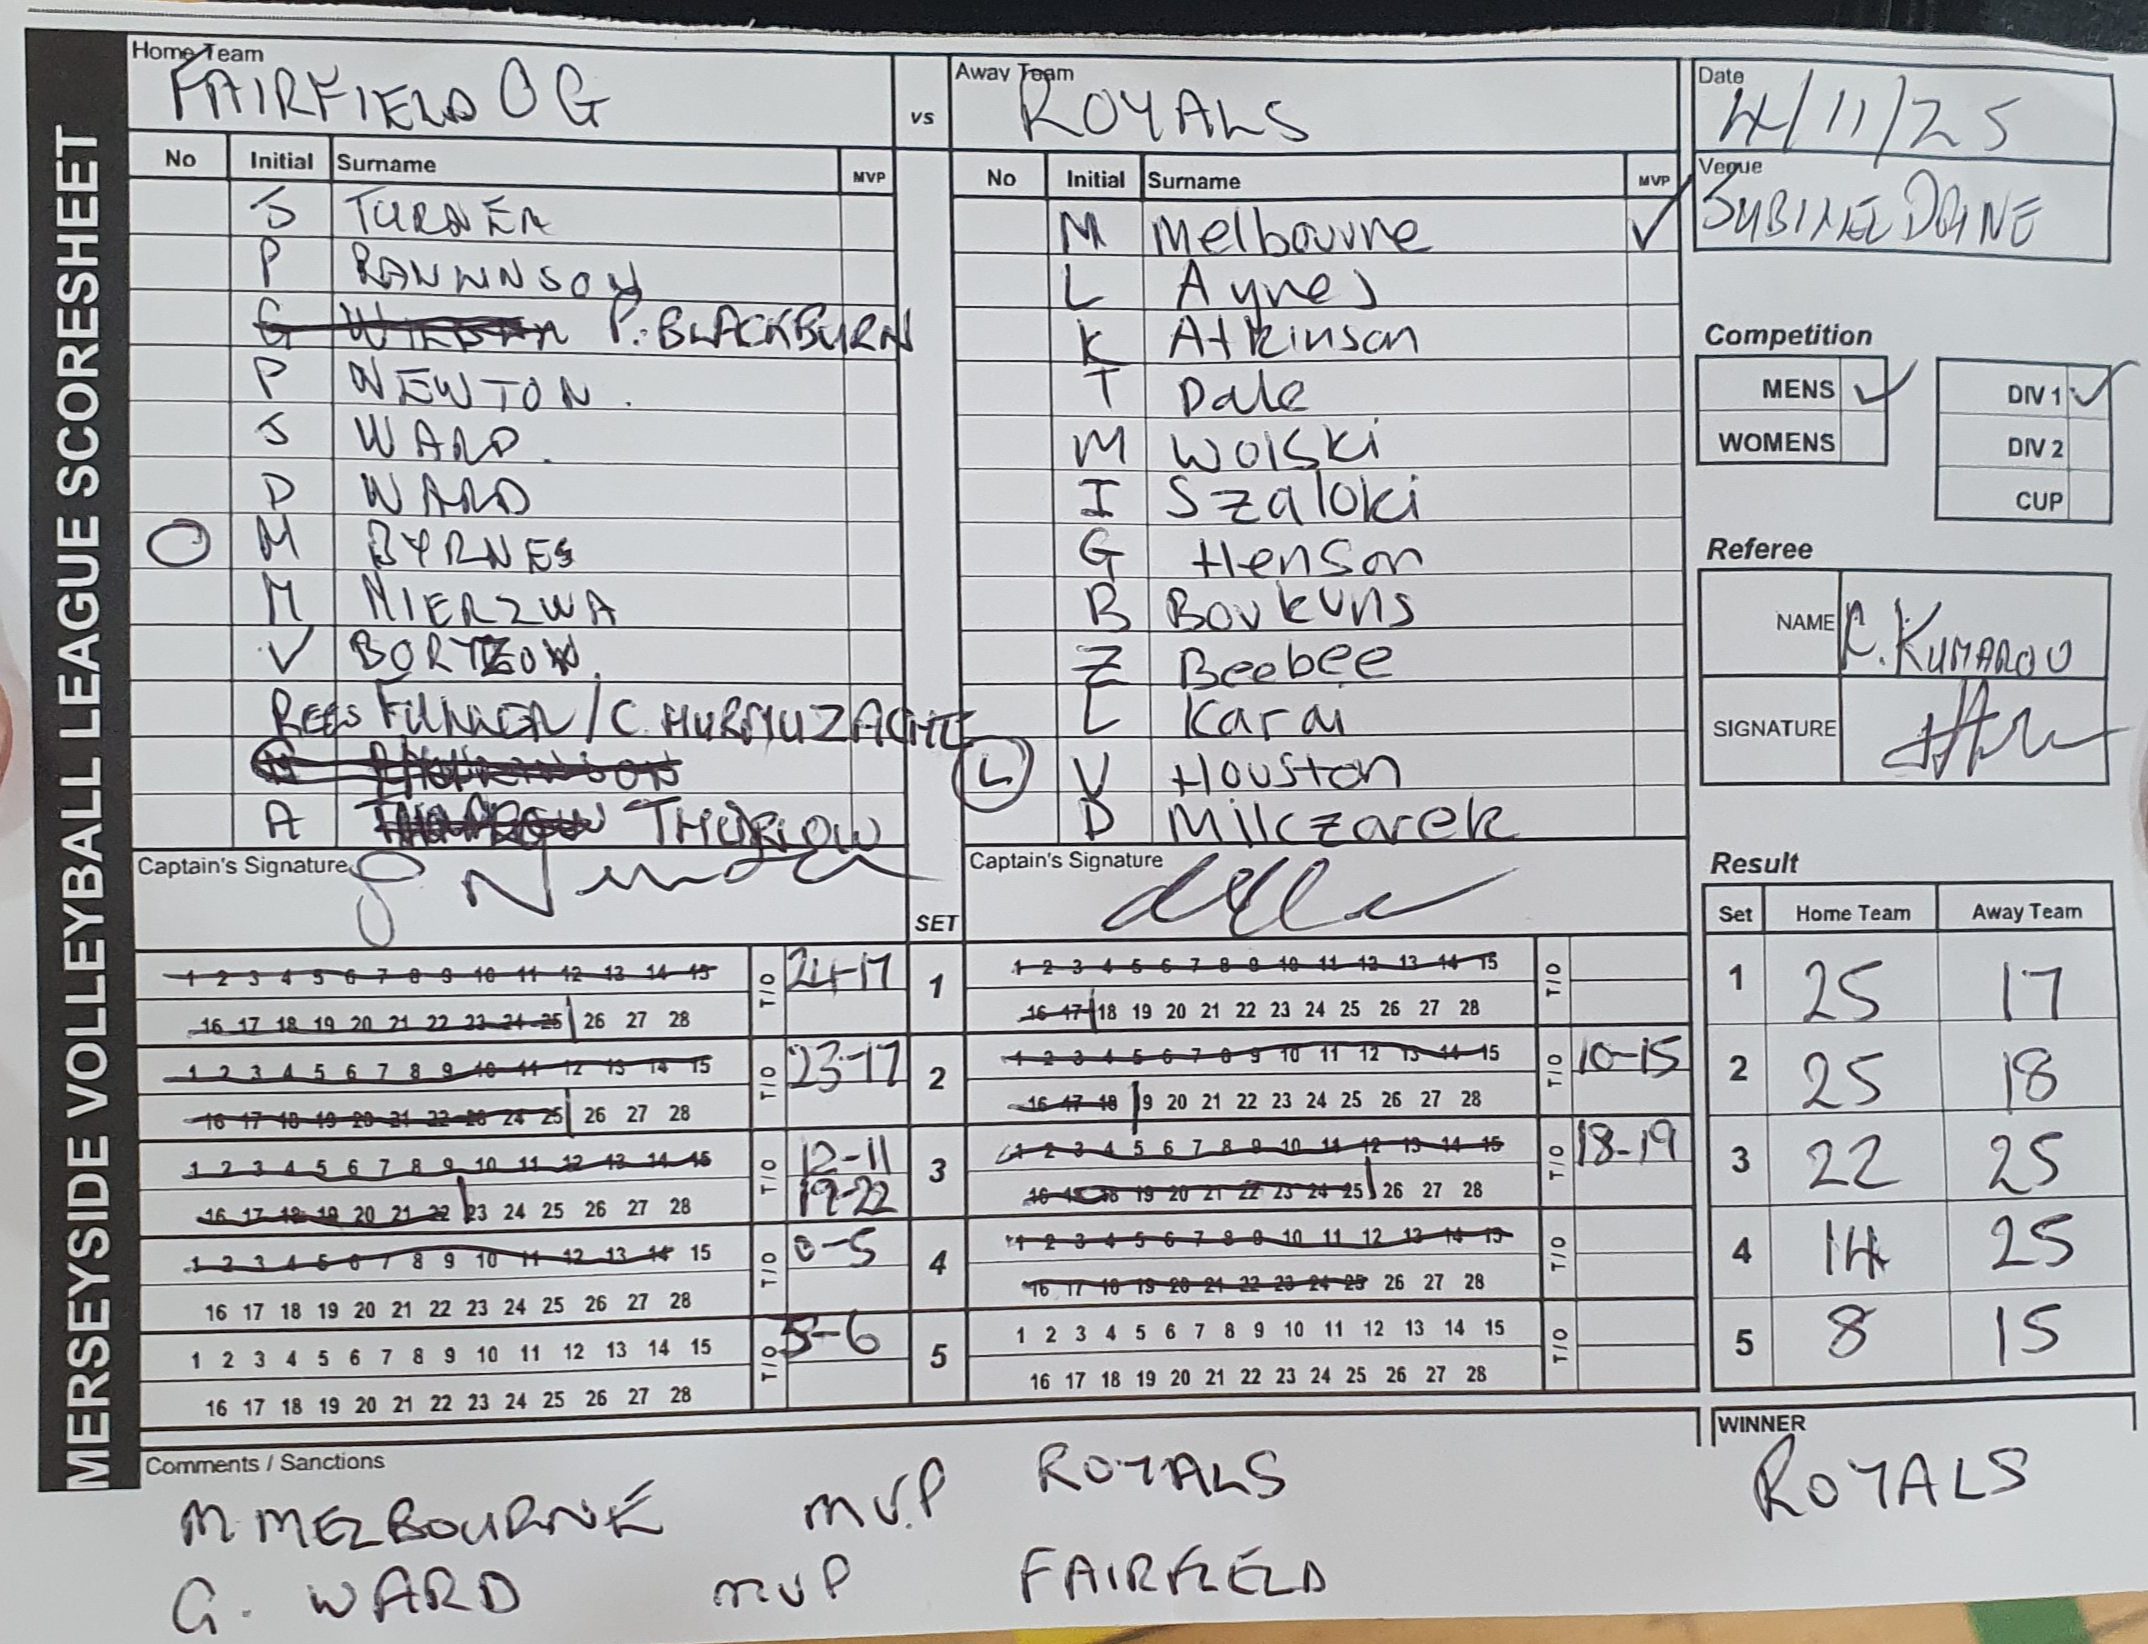 MERSEYSIDE VOLLEYBALL LEAGUE SCORESHEET
Home Team
FAIRFIELD OG
vs
Away Team
ROYALS
Date
4/11/25
Venue
No Initial Surname MVP
J TURNER
P
P. BLACKBURN
P NEWTON.
J WARD.
D WARD
M BYRNES
M MIERZWA
V
REES /C. HURMUZACHE
A THURLOW
No Initial Surname MVP
M Melbourne ✓
L Aynes
K Atkinson
T Dale
M Wolski
I Szaloki
G Henson
B Bovkuns
Z Beebee
L Karai
L V Houston
D Milczarek
Competition
MENS ✓
WOMENS
DIV 1 ✓
DIV 2
CUP
Referee
NAME
SIGNATURE
Captain's Signature
SET
Captain's Signature
1 2 3 4 5 6 7 8 9 10 11 12 13 14 15
16 17 18 19 20 21 22 23 24 25 26 27 28
T/O 24-17
1
1 2 3 4 5 6 7 8 9 10 11 12 13 14 15
16 17 18 19 20 21 22 23 24 25 26 27 28
T/O
1 2 3 4 5 6 7 8 9 10 11 12 13 14 15
16 17 18 19 20 21 22 23 24 25 26 27 28
T/O 23-17
2
1 2 3 4 5 6 7 8 9 10 11 12 13 14 15
16 17 18 19 20 21 22 23 24 25 26 27 28
T/O 10-15
1 2 3 4 5 6 7 8 9 10 11 12 13 14 15
16 17 18 19 20 21 22 23 24 25 26 27 28
T/O 12-11
19-22
3
1 2 3 4 5 6 7 8 9 10 11 12 13 14 15
16 17 18 19 20 21 22 23 24 25 26 27 28
T/O 18-19
1 2 3 4 5 6 7 8 9 10 11 12 13 14 15
16 17 18 19 20 21 22 23 24 25 26 27 28
T/O 0-5
4
1 2 3 4 5 6 7 8 9 10 11 12 13 14 15
16 17 18 19 20 21 22 23 24 25 26 27 28
T/O
1 2 3 4 5 6 7 8 9 10 11 12 13 14 15
16 17 18 19 20 21 22 23 24 25 26 27 28
T/O -6
5
1 2 3 4 5 6 7 8 9 10 11 12 13 14 15
16 17 18 19 20 21 22 23 24 25 26 27 28
T/O
Result
Set Home Team Away Team
1 25 17
2 25 18
3 22 25
4 14 25
5 8 15
WINNER
ROYALS
Comments / Sanctions
M. MELBOURNE MV.P ROYALS
G. WARD MVP FAIRFIELD